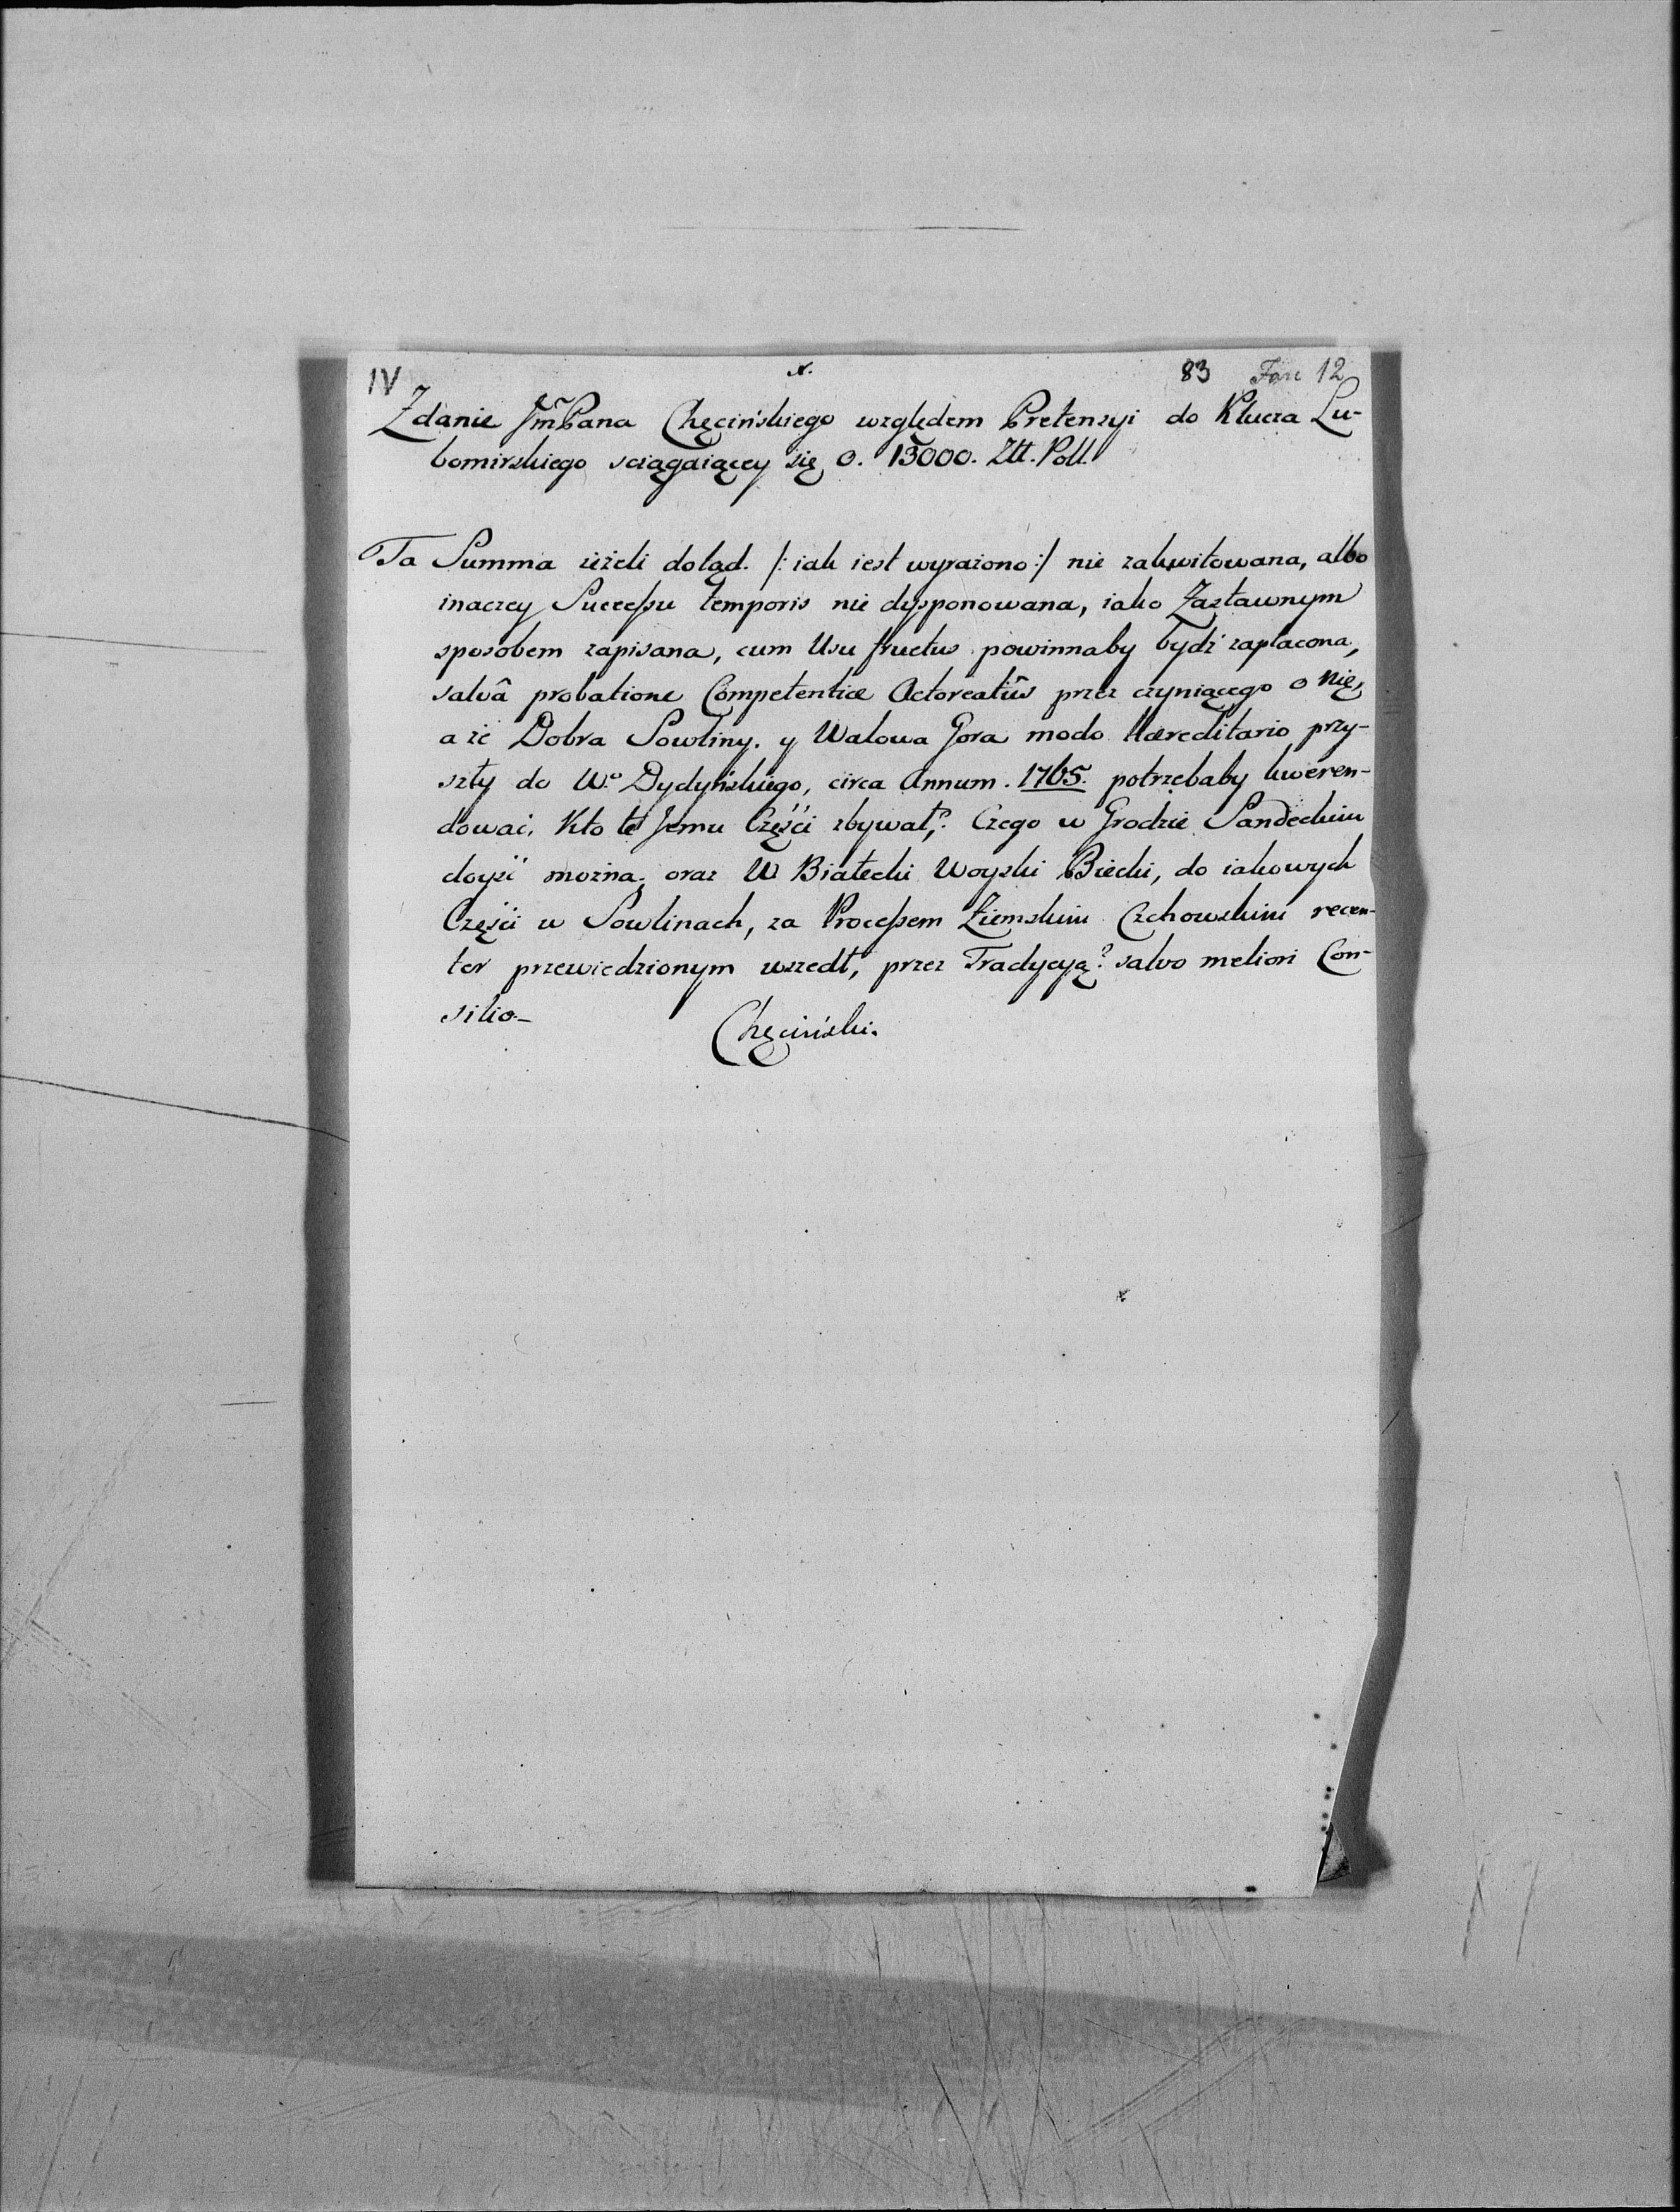 IV N. 83 Fasc 12
Zdanie JmPana Chęcińskiego względem Pretensyi do Klucza Lu-
bomirskiego sciągaiącey się o. 13000. Złł. Poll.
Ta Summa ieżeli dotąd. /: iak iest wyrażono :/ nie zakwitowana, albo
inaczey Successu temporis nie dysponowana, iako Zastawnym
sposobem zapisana, cum Usu fructus powinnaby bydź zapłacona,
salvâ probatione Competentiæ Actoreatûs przez czyniącego o nię,
a że Dobra Sowliny. y Walowa Gora modo Hæreditario przy-
szły do W.º Dydyńskiego, circa Annum. 1765. potrzebaby kweren-
dować, Kto te Jemu Części zbywał,? Czego w Grodzie Sandeckim
doyść można; oraz W Białecki Woyski Biecki, do iakowych
Części w Sowlinach, za Processem Ziemskim Czchowskim recen-
ter przewiedzionym wszedł, przez Tradycyą? salvo meliori Con-
silio.-
Chęciński.